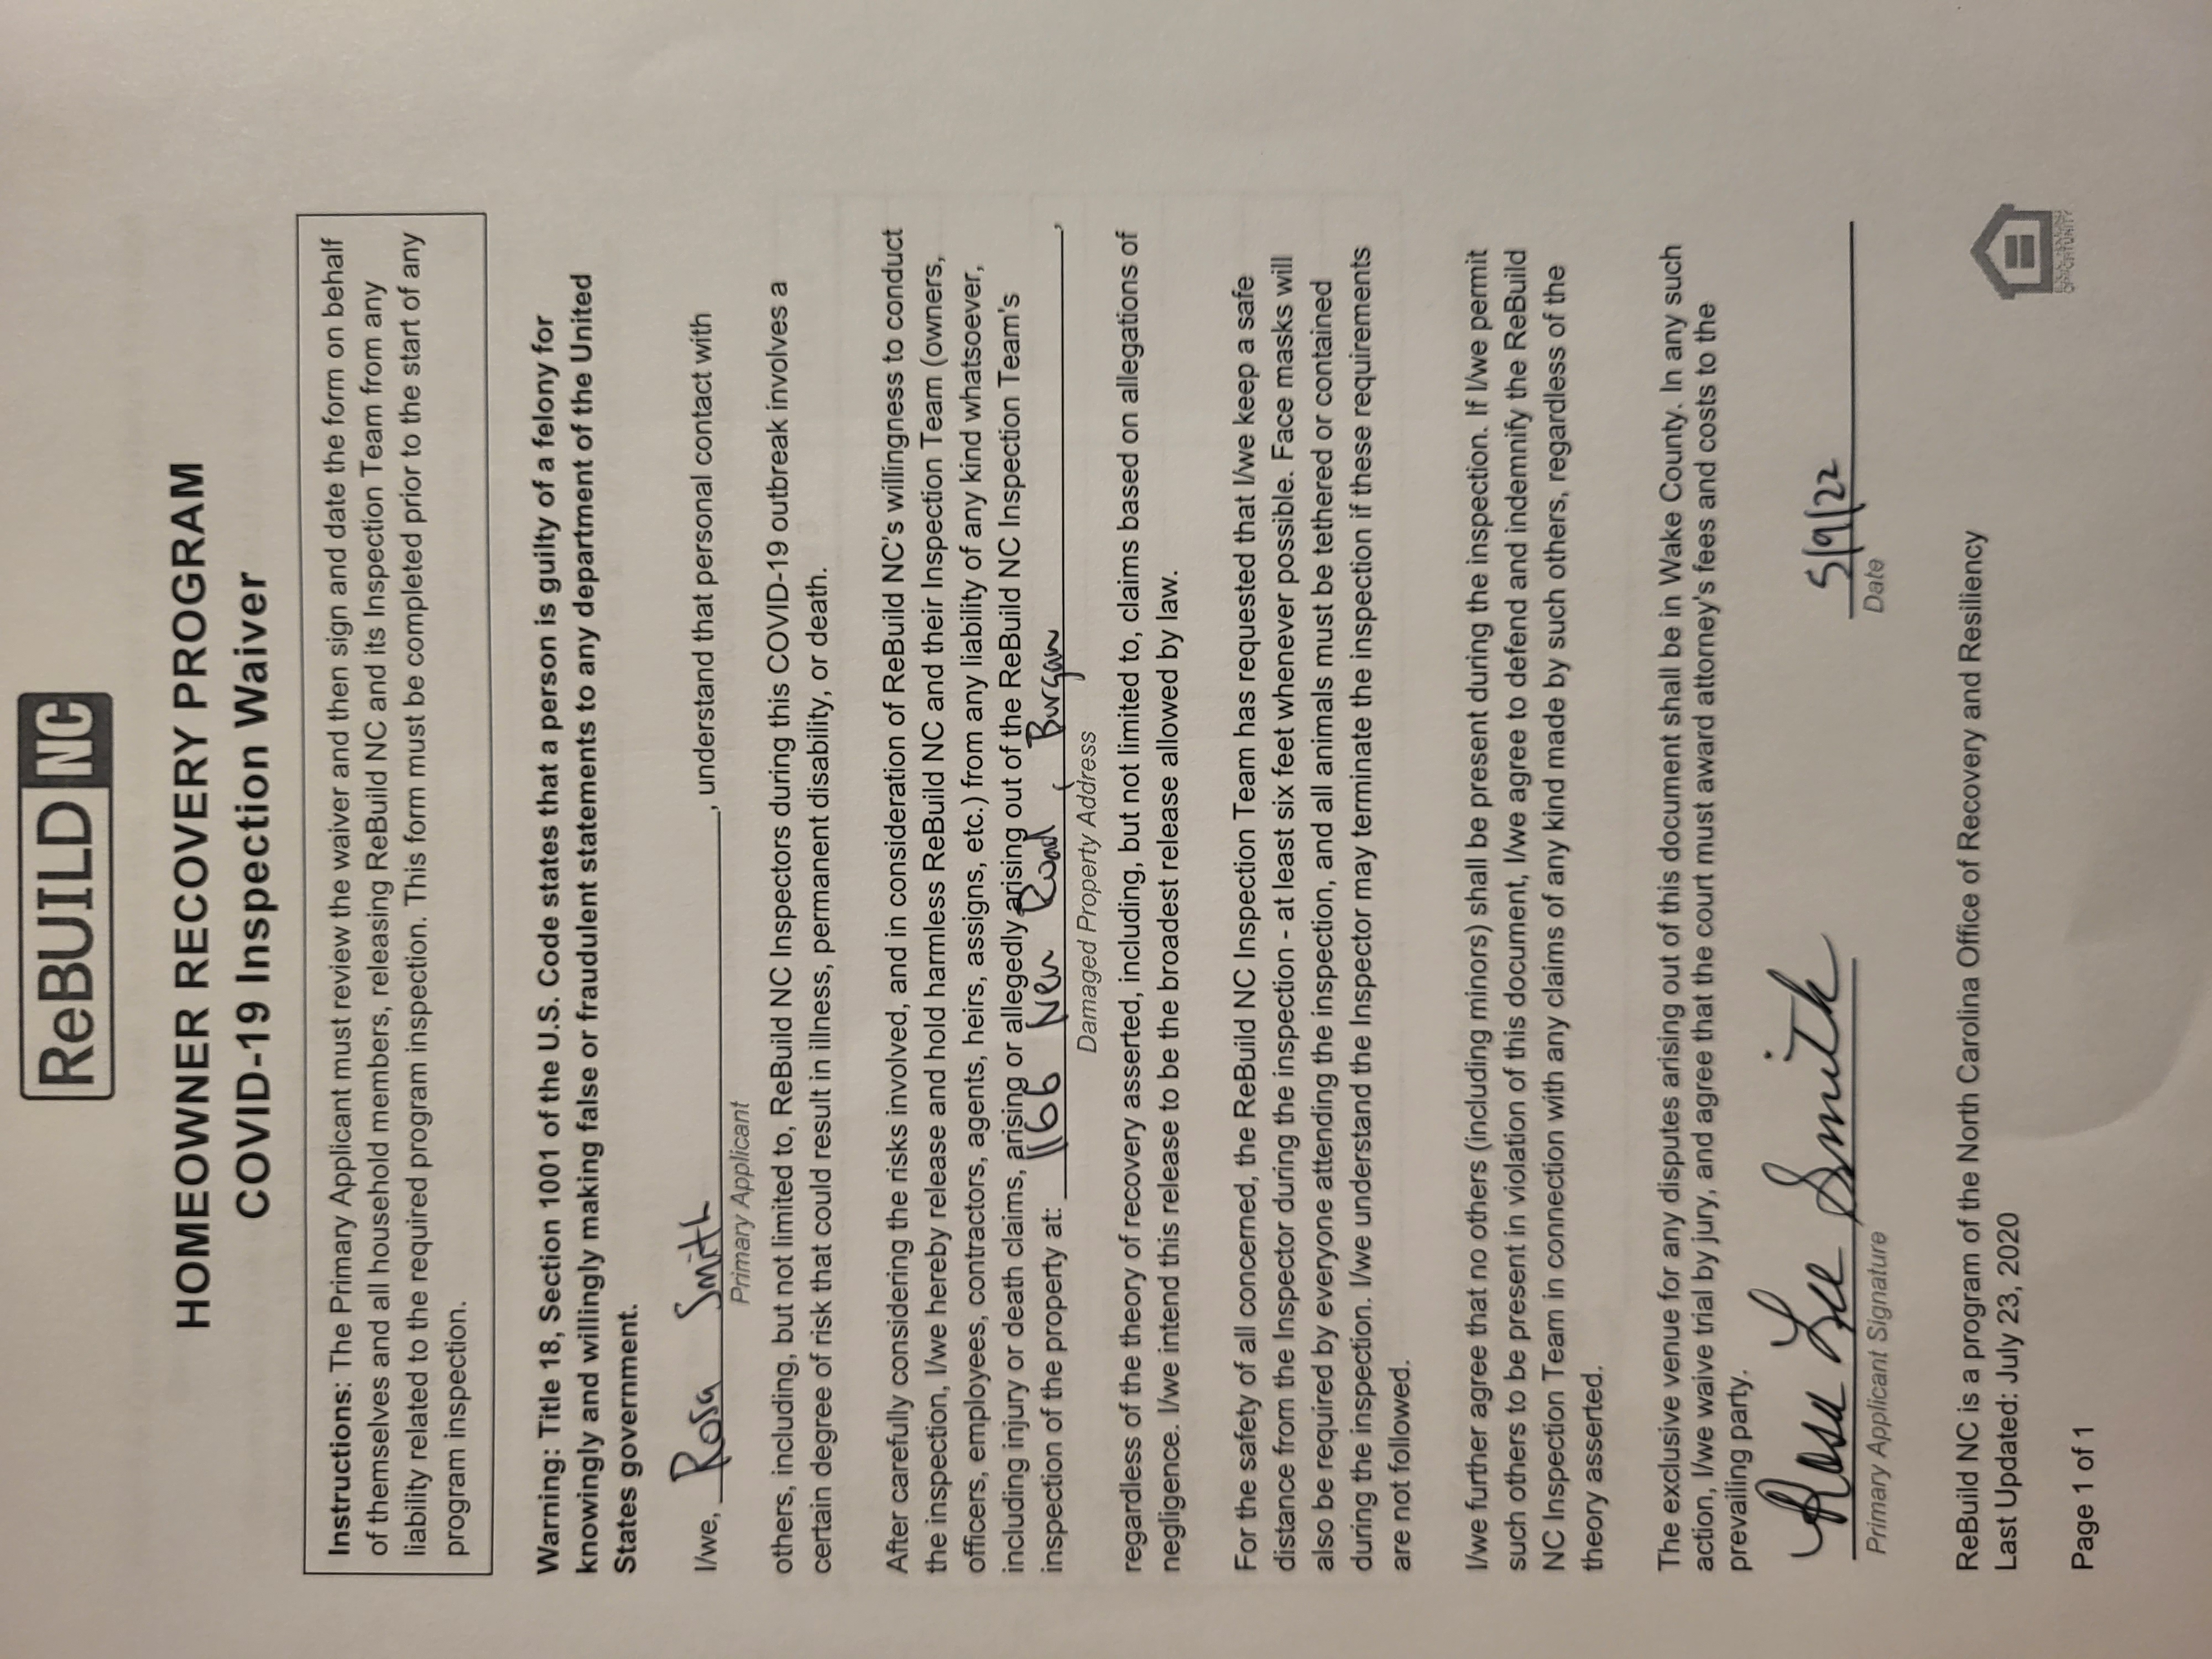 ReBUILD NC
HOMEOWNER RECOVERY PROGRAM
COVID-19 Inspection Waiver
Instructions: The Primary Applicant must review the waiver and then sign and date the form on behalf
of themselves and all household members, releasing ReBuild NC and its Inspection Team from any
liability related to the required program inspection. This form must be completed prior to the start of any
program inspection.
Warning: Title 18, Section 1001 of the U.S. Code states that a person is guilty of a felony for
knowingly and willingly making false or fraudulent statements to any department of the United
States government.
I/we, Rosa Smith, understand that personal contact with
Primary Applicant
others, including, but not limited to, ReBuild NC Inspectors during this COVID-19 outbreak involves a
certain degree of risk that could result in illness, permanent disability, or death.
After carefully considering the risks involved, and in consideration of ReBuild NC's willingness to conduct
the inspection, I/we hereby release and hold harmless ReBuild NC and their Inspection Team (owners,
officers, employees, contractors, agents, heirs, assigns, etc.) from any liability of any kind whatsoever,
including injury or death claims, arising or allegedly arising out of the ReBuild NC Inspection Team's
inspection of the property at: 1166 New Road, Burgaw,
Damaged Property Address
regardless of the theory of recovery asserted, including, but not limited to, claims based on allegations of
negligence. I/we intend this release to be the broadest release allowed by law.
For the safety of all concerned, the ReBuild NC Inspection Team has requested that I/we keep a safe
distance from the Inspector during the inspection - at least six feet whenever possible. Face masks will
also be required by everyone attending the inspection, and all animals must be tethered or contained
during the inspection. I/we understand the Inspector may terminate the inspection if these requirements
are not followed.
I/we further agree that no others (including minors) shall be present during the inspection. If I/we permit
such others to be present in violation of this document, I/we agree to defend and indemnify the ReBuild
NC Inspection Team in connection with any claims of any kind made by such others, regardless of the
theory asserted.
The exclusive venue for any disputes arising out of this document shall be in Wake County. In any such
action, I/we waive trial by jury, and agree that the court must award attorney's fees and costs to the
prevailing party.
Rosa Lee Smith 5/9/22
Primary Applicant Signature Date
ReBuild NC is a program of the North Carolina Office of Recovery and Resiliency
Last Updated: July 23, 2020
Page 1 of 1